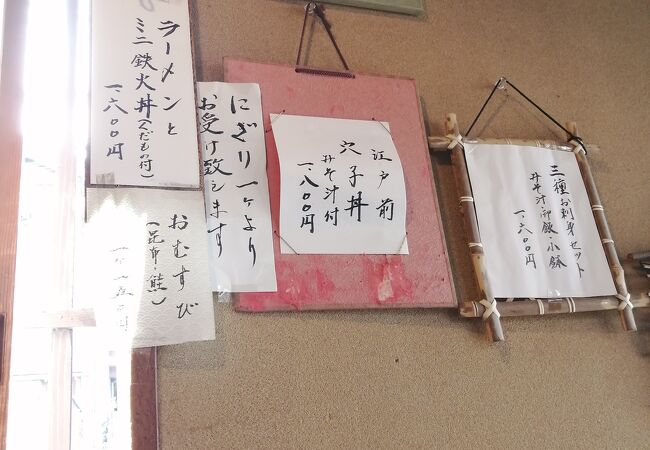 ラーメンと
ミニ鉄火丼(くだもの付)
一、六〇〇円
おむすび
(昆布・鮭)
にぎり一ケより
お受け致します
江戸前
穴子丼
みそ汁付
一、八〇〇円
三種お刺身セット
みそ汁・御飯・小鉢
一、六〇〇円